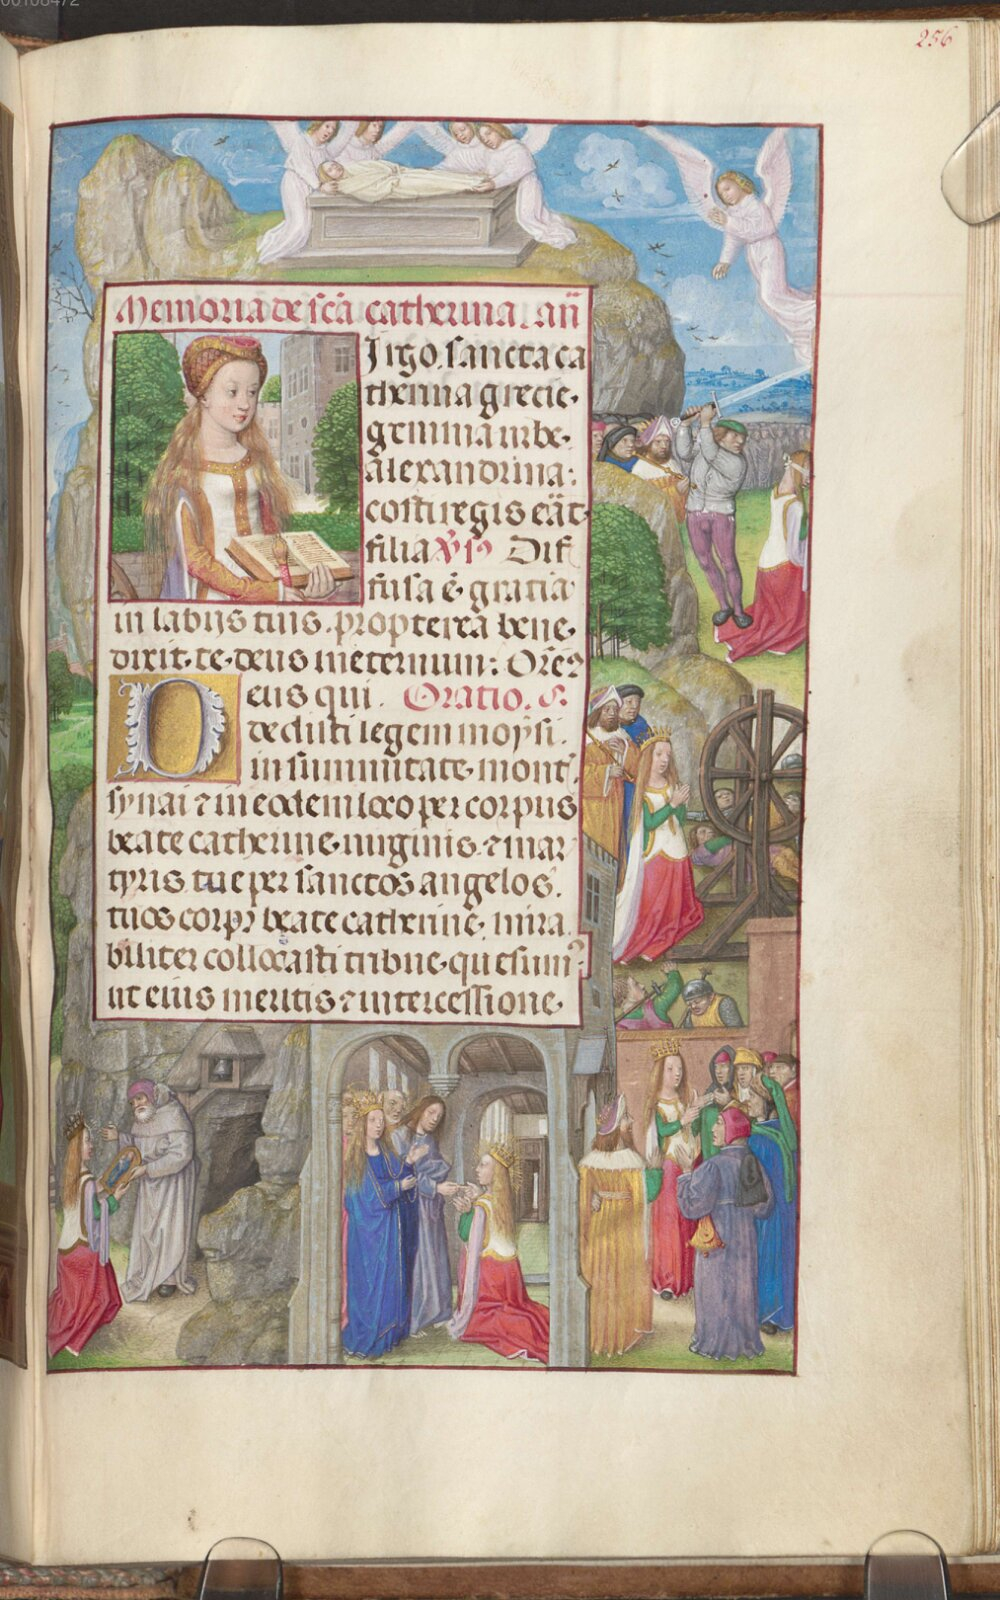 00108472
256
Memoria de scā catherina. añ
Virgo. sancta ca
therina grecie.
gemma urbe.
alexandrina:
costi regis eāt
filia V̄s⁹ Dif
fusa ē. gratia
in labijs tuis. propterea bene.
dixit. te. deus in eternum: Orēꝰ
eus qui. Oratio. S.
dedisti legem moysi.
in summitate. mont̄.
synai ⁊ in eodem loco per corpus
beate catherine. uirginis. ⁊ mar
tyris. tue per sanctos angelos.
tuos corpꝰ beate catherine. mira.
biliter collocasti tribue. quesumꝰ
ut eius meritis ⁊ intercessione.